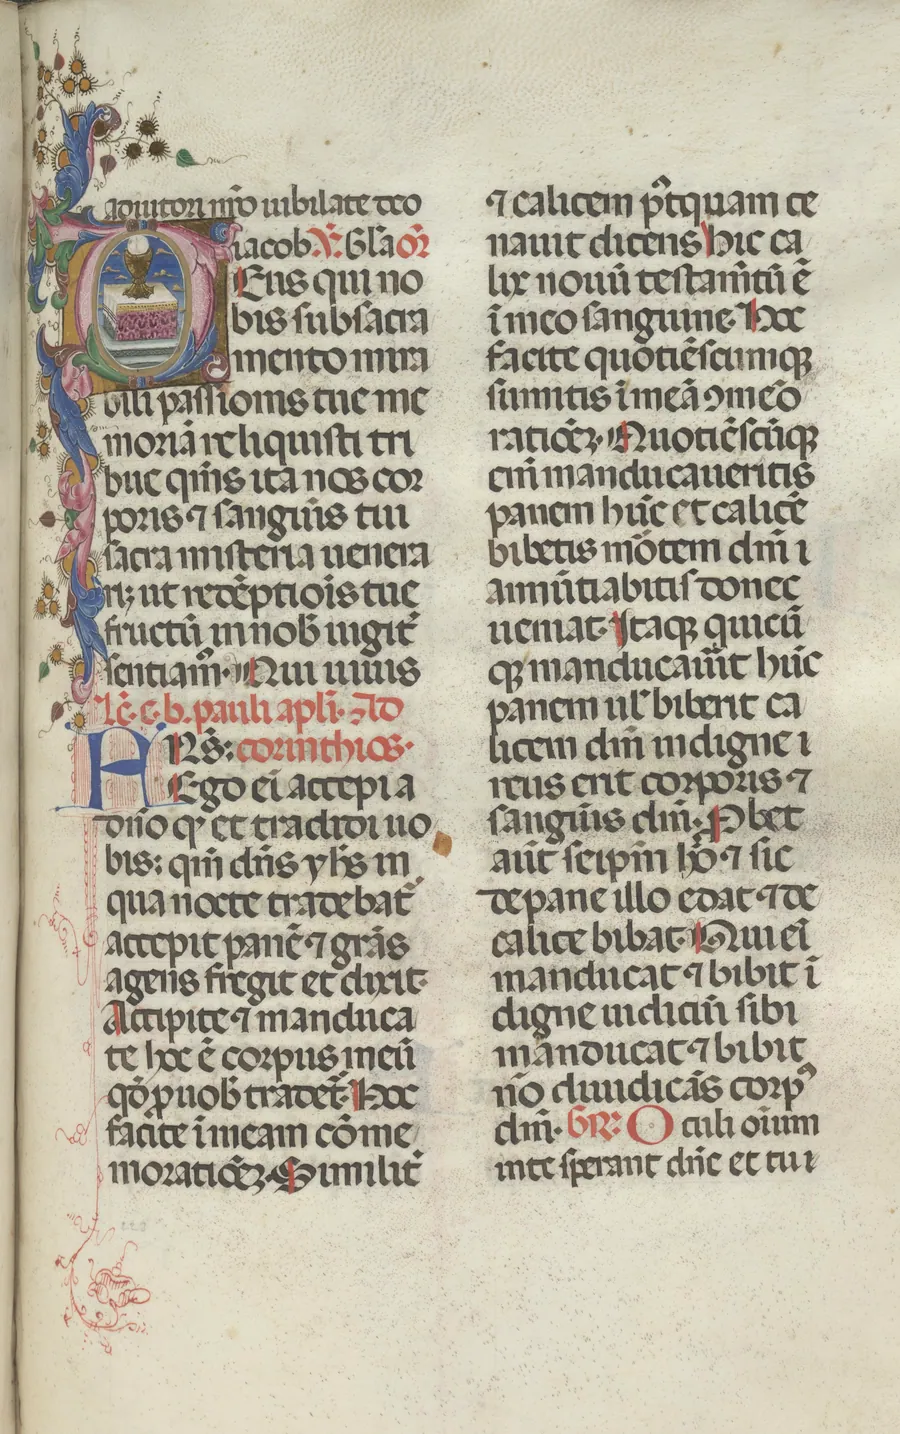 adiutori nr̄o iubilate deo
iacob. V̄. Gl̄a or̄
Deus qui no
bis sub sacra
mento mira
bili passionis tue me
moriā reliquisti tri
bue q̄m̄s ita nos cor
poris ⁊ sanguīs tui
sacra misteria uenera
ri; ut redēptiōis tue
fructū in nob̄ iugit̄
sentiam᷒. Qui uiuis
Lc̄. e. b. pauli apl̄i. Ad
FRS̄: corinthios.
Ego eī accepi a
dn̄o qd̄ et tradidi uo
bis: qm̄ dn̄s yh̄s in
qua nocte tradebat᷒
accepit panē ⁊ grās
agens fregit et dixit.
Accipite ⁊ manduca
te hoc ē corpus meū
qd̄ ꝓ uob̄ tradet᷒. Hoc
facite ī meam cōme
moratiōꝫ. Similit᷒
⁊ calicem p̄tquam ce
nauit dicens hic ca
lix nouū testam̄tū ē
ī meo sanguine. Hoc
facite quotiēscumqꝫ
sumitis ī meā ꝯmeō
ratiōeꝫ. Quotiēscūqꝫ
eni᷒ manducaueritis
panem hūc et calicē
bibetis mōtem dn̄i
annūtiabitis donec
ueniat. Itaqꝫ quicū
qꝫ manducau᷒it hūc
panem ul̄ biberit ca
licem dn̄i indigne
reus erit corporis ⁊
sanguīs dn̄i. Pbet
aūt seip̄m hō ⁊ sic
de pane illo edat ⁊ de
calice bibat. Qui eī
manducat ⁊ bibit ī
digne iudiciū sibi
manducat ⁊ bibit
nō diiudicās corpꝰ
dn̄i. GR̄: Oculi oīum
in te sperant dn̄e et tu